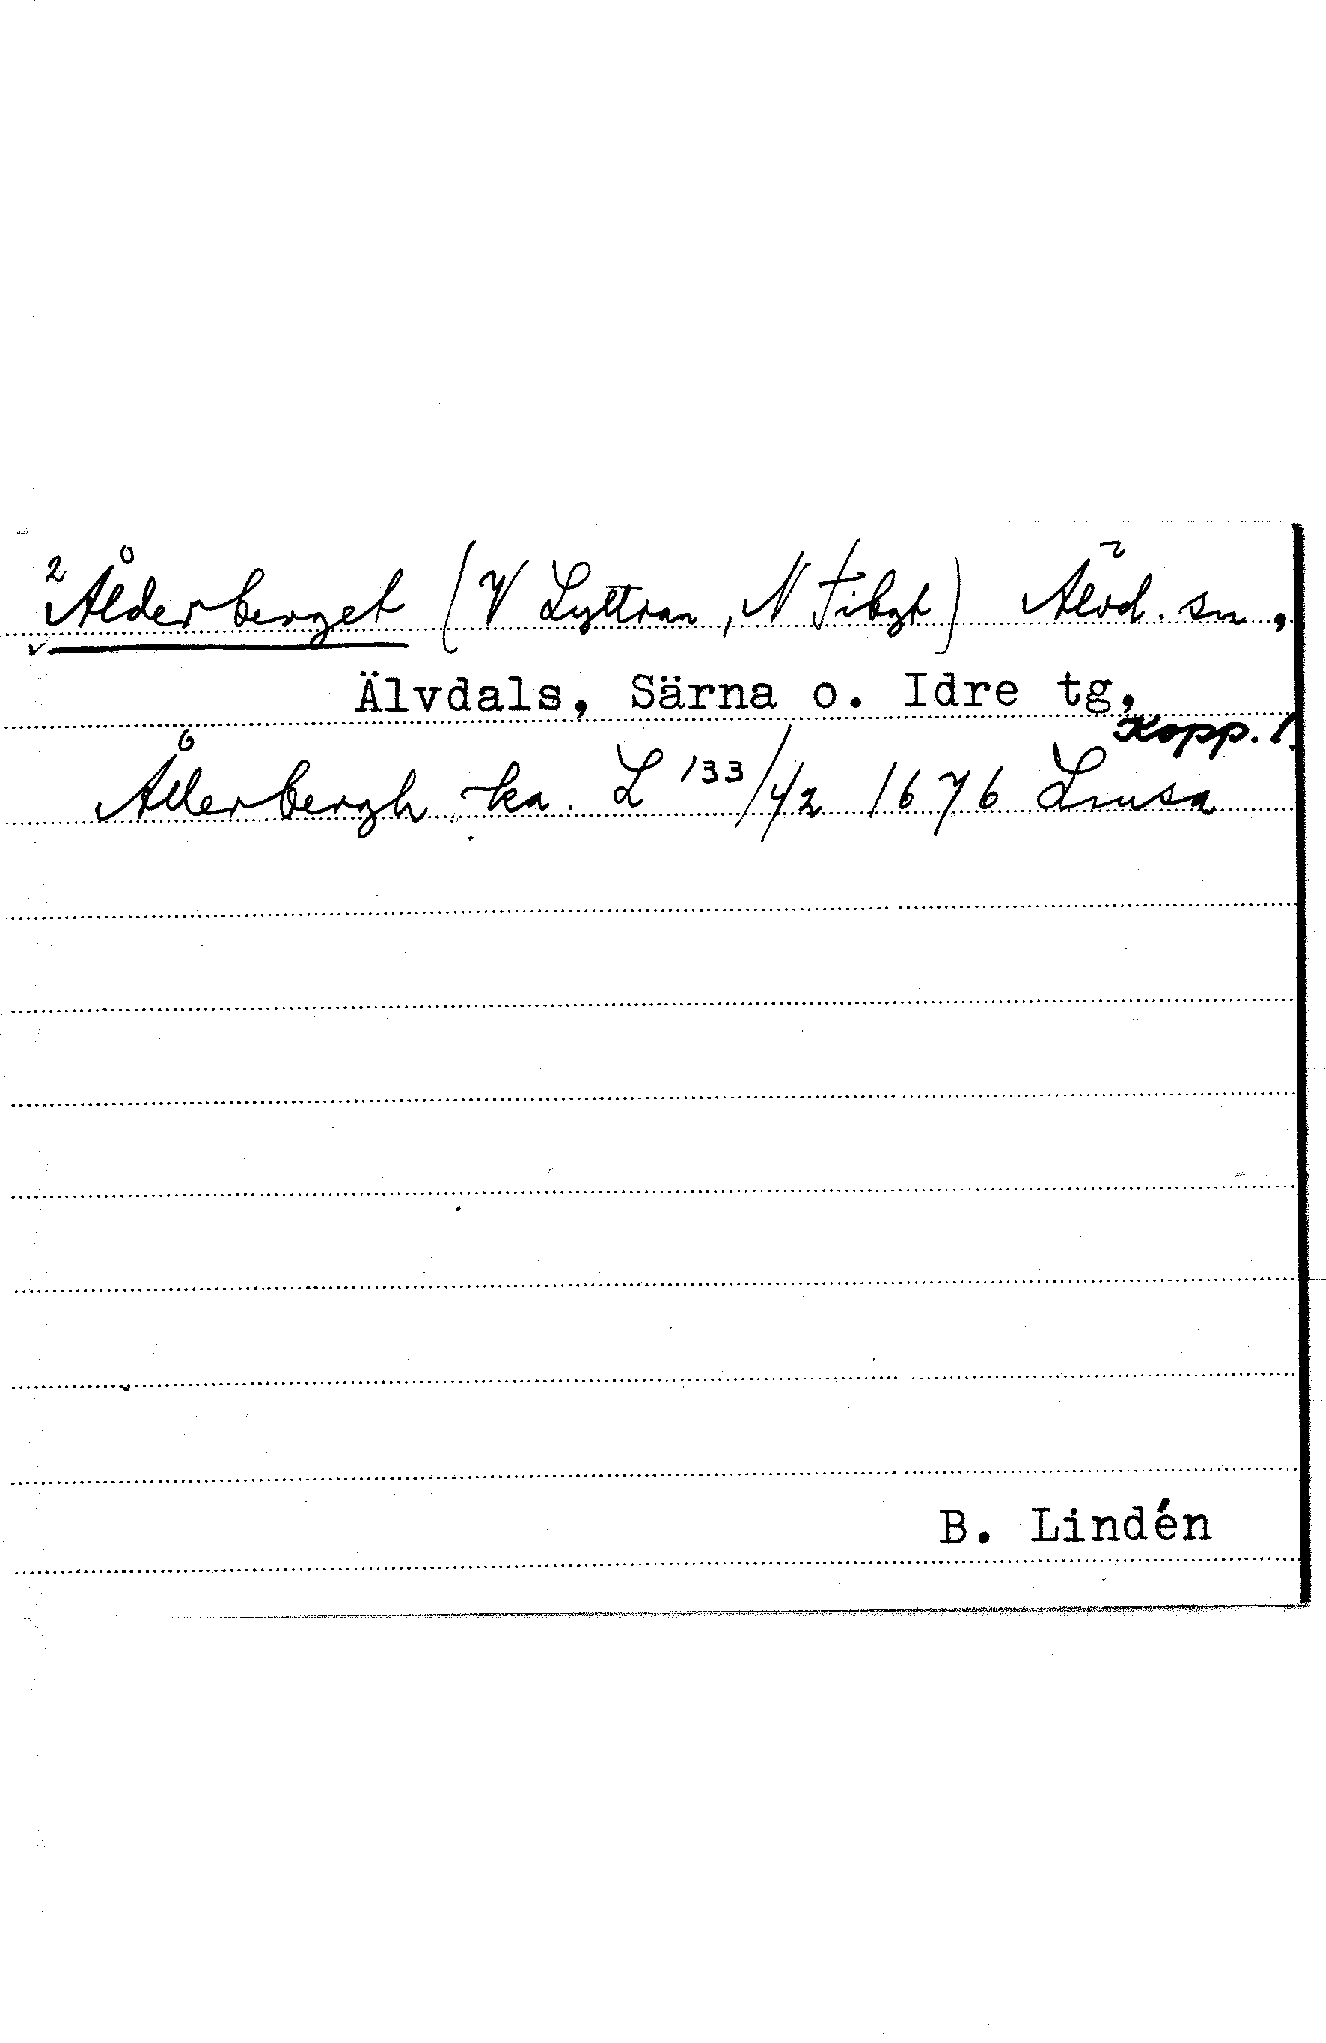 2 Ålderberget (V Lyttran, N Fibgt) Älvd. sn,
Älvdals, Särna o. Idre tg,
Kopp. l.
Ållerbergh ka. L 133/42 1676
B. Lindén